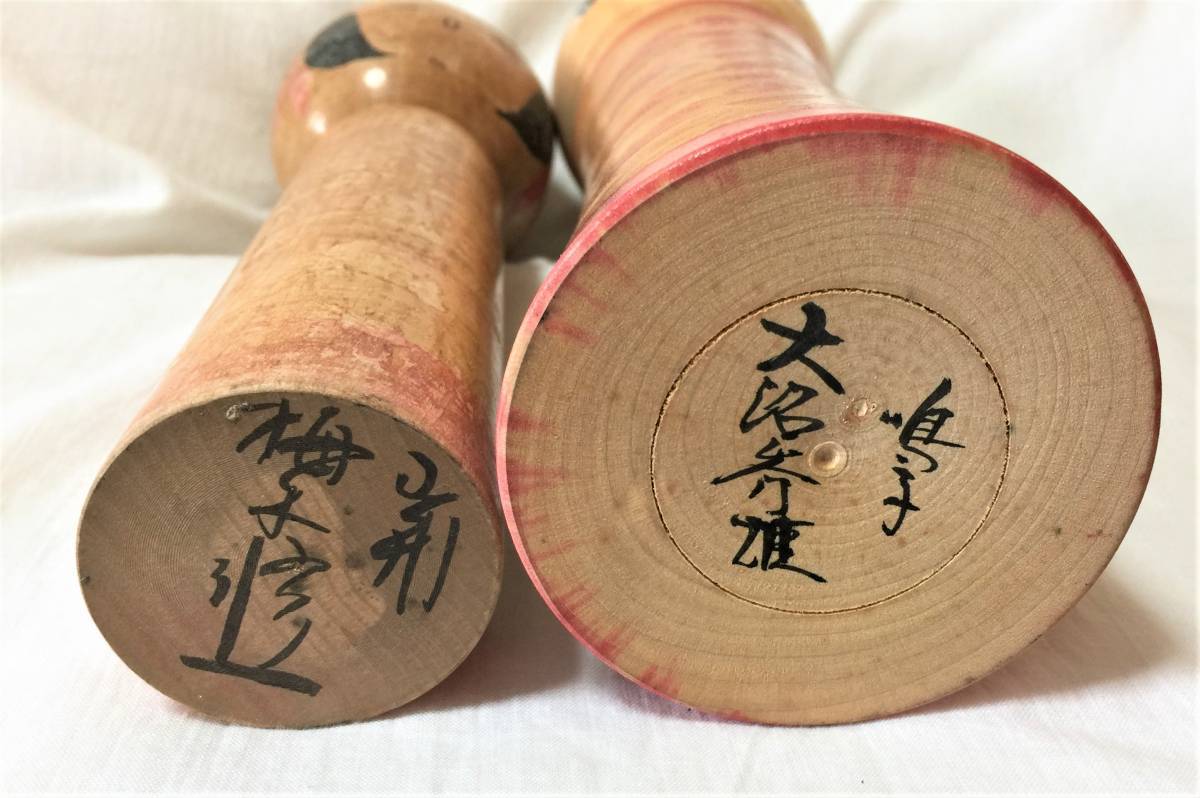 山形
梅木修一
鳴子
大沼秀雄